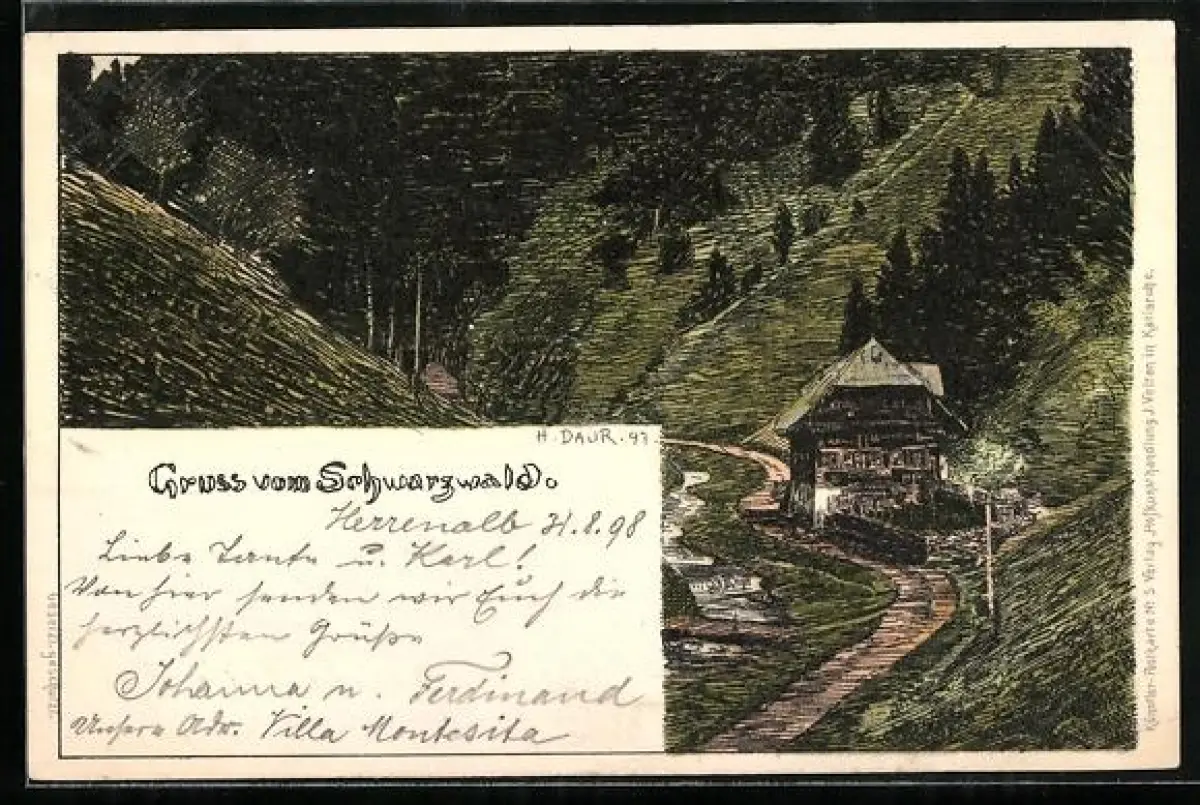 H. DAUR. 97.
Gruss vom Schwarzwald.
Herrenalb 31.8.98
Liebe Tante u. Karl!
Von hier senden wir Euch die
herzlichsten Grüße
Johanna u. Ferdinand
Unsere Adr. Villa Montesita
Künstler-Postkarte № 5 Verlag J. Velten in Karlsruhe.